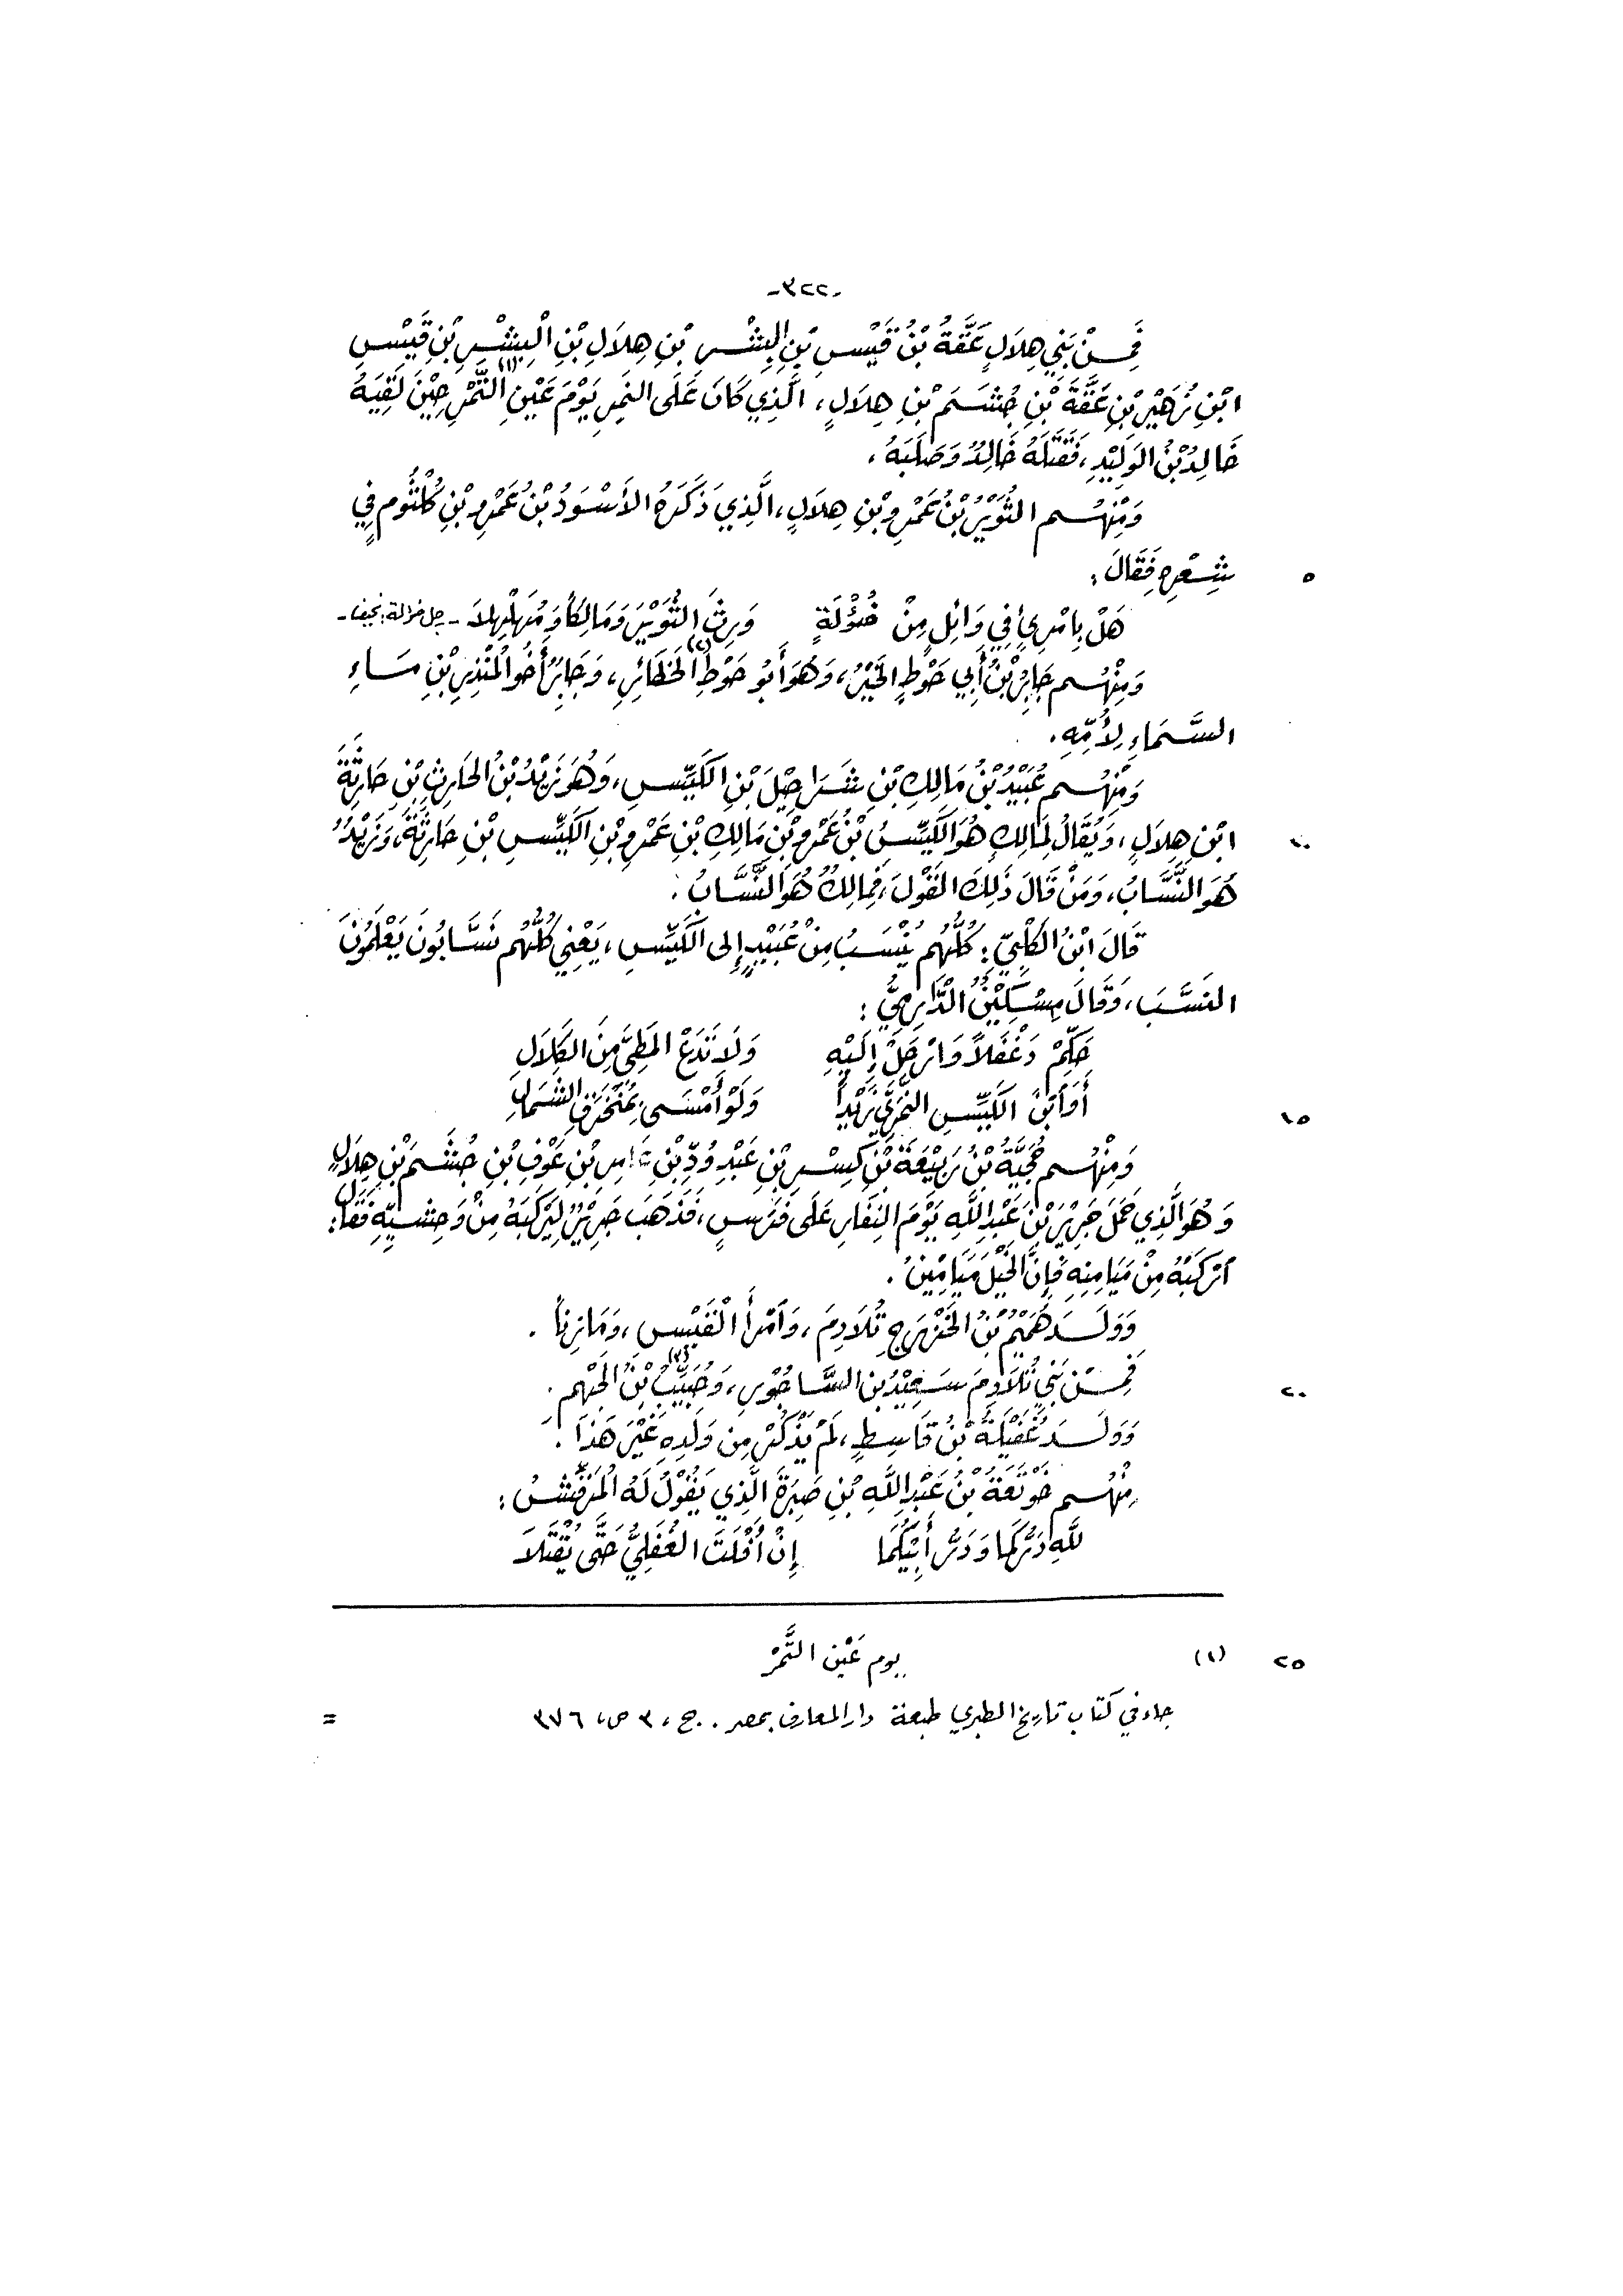 -٣٢٢-
فَمِنْ بَنِي هِلَالٍ عَقَّةُ بْنُ قَيْسِ بْنِ البِشْرِ بْنِ هِلَالِ بْنِ الْبِشْرِ بْنِ قَيْسِ
ابْنِ زُهَيْرِ بْنِ عَقَّةَ بْنِ جُشَمَ بْنِ هِلَالٍ، الَّذِي كَانَ عَلَى النَّمِرِ يَوْمَ عَيْنِ التَّمْرِ (١) حِيْنَ لَقِيَهُ
خَالِدُ بْنُ الوَلِيْدِ، فَقَتَلَهُ خَالِدُ وَصَلَبَهُ،
وَمِنْهُم التُّوَيْرُ بْنُ عَمْرِو بْنِ هِلَالٍ، الَّذِي ذَكَرَهُ الأَسْوَدُ بْنُ عَمْرِو بْنِ كُلْثُومٍ فِي
٥ شِعْرِهِ فَقَالَ:
هَلْ بِامْرِئٍ فِي وَائِلٍ مِنْ ضُؤْلَةٍ وَرِثَ التُّوَيْرَ وَمَالِكاً وَمُهَلْهِلَا - رجل ضؤلة: نحيف -
وَمِنْهُم جَابِرُ بْنُ أَبِي حَوْطِ الخَيْرِ، وَهُوَ أَبُو حَوْطِ (٢) الحَظَائِرِ، وَجَابِرٌ أَخُو الْمُنْذِرِ بْنِ مَاءِ
السَّمَاءِ لِأُمِّهِ.
وَمِنْهُم عُبَيْدُ بْنُ مَالِكِ بْنِ شَرَاحِيْلَ بْنِ الكَيِّسِ، وَهُوَ زَيْدُ بْنُ الحَارِثِ بْنِ حَارِثَةَ
١٠ ابْنِ هِلَالٍ، وَيُقَالُ لِمَالِكٍ هُوَ الكَيِّسُ بْنُ عَمْرِو بْنِ مَالِكِ بْنِ عَمْرِو بْنِ الكَيِّسِ بْنِ حَارِثَةَ، وَزَيْدُ
هُوَ النَّسَّابُ، وَمَنْ قَالَ ذَلِكَ القَوْلَ، فَمَالِكُ هُوَ النَّسَّابُ.
قَالَ ابْنُ الكَلْبِيِّ: كُلُّهُم يُنْسَبُ مِنْ عُبَيْدٍ إِلَى الكَيِّسِ، يَعْنِي كُلُّهُم نَسَّابُونَ يَعْلَمُونَ
النَّسَبَ، وَقَالَ مِسْكِيْنُ الدَّارِمِيُّ:
حَكِّمْ دَغْفَلاً وَارْحَلْ إِلَيْهِ وَلَا تَدَعْ المَطِيَّ مِنَ الكَلَالِ
١٥ أَوِ أبْنَ الكَيِّسِ النَّمَرِيَّ زَيْداً وَلَوْ أَمْسَى بِمُنْخَرَقِ الشَّمَالِ
وَمِنْهُم حُجَيَّةُ بْنُ رَبِيْعَةَ بْنِ كِسْرِ بْنِ عَبْدِ وُدِّ بْنِ بْنِ عَوْفِ بْنِ جُشَمَ بْنِ هِلَالٍ
وَهُوَ الَّذِي حَمَلَ جَرِيْرَ بْنَ عَبْدِ اللَّهِ يَوْمَ النِفَارِ عَلَى فَرَسٍ، فَذَهَبَ جَرِيْرٌ لِيَرْكَبَهُ مِنْ وَحْشِيِّهِ فَقَالَ:
ٱرْكَبْهُ مِنْ مَيَامِنِهِ فَإِنَّ الخَيْلَ مَيَامِيْنُ.
وَوَلَدَ هَمِيْمُ بْنُ الخَزْرَجِ تُلَادِمَ، وَٱمْرَأَ الْقَيْسِ، وَمَازِناً.
٢٠ فَمِنْ بَنِي تُلَادِمَ سَعِيْدُ بن السَّاجُوْرِ، وَحُبَيِّبُ (٣) بْنُ الجَهْمِ.
وَوَلَدَ غُفَيْلَةُ بْنُ قَاسِطٍ، لَمْ يَذْكُرْ مِن وَلَدِهِ غَيْرَ هَذَا.
مِنْهُم خَوْتَعَةُ بْنُ عَبْدِ اللَّهِ بْنِ صَبِرَةَ الَّذِي يَقُوْلُ لَهُ الْمُرَقِّشُ:
لِلَّهِ دَرُّكُمَا وَدَرُّ أَبِيْكُمَا إِنْ أَفْلَتَ الغُفَلِيُّ حَتَّى يُقْتَلَا
٢٥ (١) يوم عَيْن التَّمْرْ
جاء في كتاب تاريخ الطبري طبعة دار المعارف بمصر.. ج، ٣ ص، ٣٧٦ =